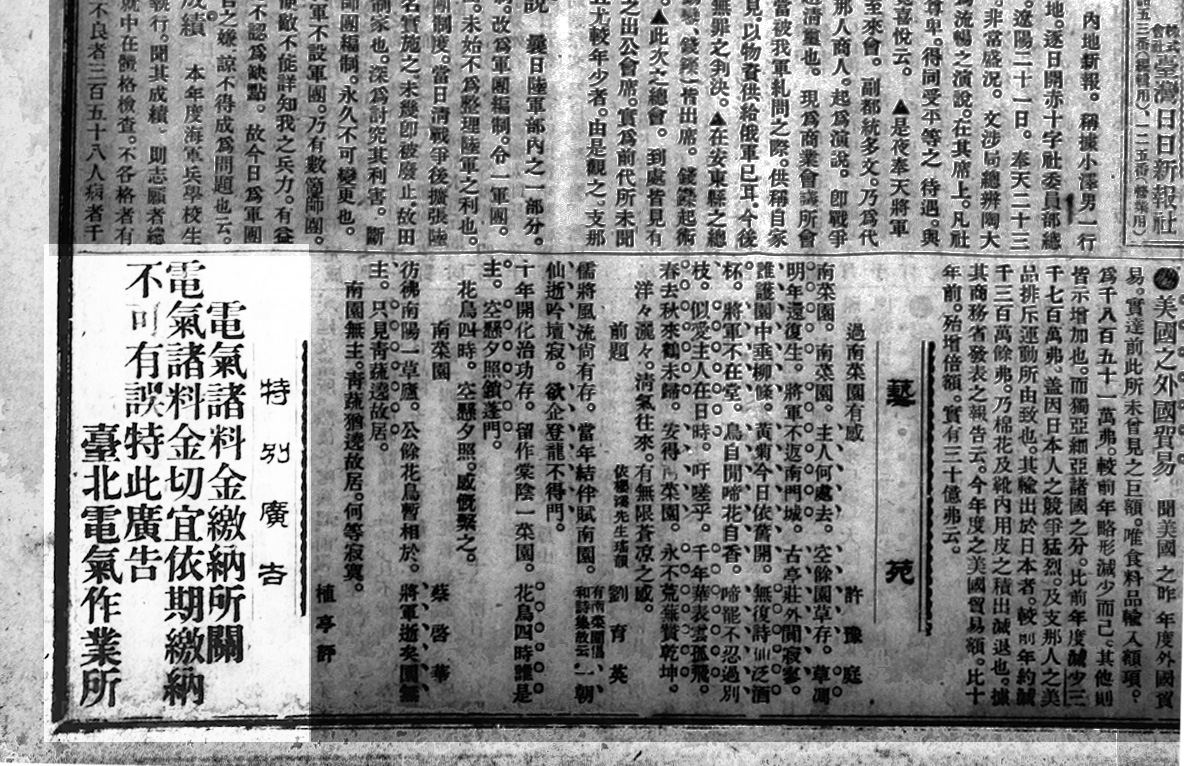 株式會社臺灣日日新報社
五三番(編輯用)、一二五番(營業用)
內地新報。稱據小澤男一行
地。逐日開赤十字社委員部總
遼陽二十一日。奉天二十三
非常盛況。文涉局總辨陶大
爲流暢之演說。在其席上。凡社
尊卑。得同受平等之待遇。與
喜悅云。▲是夜奉天將軍
至來會。副都統多文。乃爲代
那人商人。起爲演說。卽戰爭
過淸黨也。現爲商業會議所會
當被我軍糺問之際。供稱自家
見。以物資供給俄軍已耳。今後
無罪之判決。▲在安東縣之總
皆出席。鏗鏗起術
▲此次之總會。到處皆見有
之出公會席。實爲前代所未聞
尤較年少者。由是觀之。支那
說 曩日陸軍部內之一部分。
改爲軍團編制。合一軍團。
未始不爲整理陸軍之利也。
團制度。當日淸戰爭後擴張陸
名實施之。未幾卽被廢止。故田
制家也。深爲討究其利害。斷
師團編制。永久不可變更也。
軍不設軍團。乃有數箇師團。
敵不能詳知我之兵力。有益
不認爲缺點。故今日爲軍團
之嫌。諒不得成爲問題也云。
成績 本年度海軍兵學校生
執行。聞其成績。則志願者總
就中在體格檢查。不合格者有
不良者三百五十八人病者千
美國之外國貿易 聞美國之昨年度外國貿
易。實達前此所未曾見之巨額。唯食料品輸入額項。
爲千八百五十一萬弗。較前年略形減少而已。其他則
皆示增加也。而獨亞細亞諸國之分。比前年度減少三
千七百萬弗。盖因日本人之競爭猛烈。及支那人之美
品排斥運動所由致也。其輸出於日本者。較前年約減
千三百萬餘弗。乃棉花及靴內用皮之積出減退也。據
其商務省發表之報告云。今年度之美國貿易額。比十
年前。殆增倍額。實有三十億弗云。
藝苑
過南菜園有感 許豫庭
南菜園。南菜園。主人何處去。空餘園草存。草凋
明年還復生。將軍不返南門城。古亭莊外聞寂寥。
誰護園中垂柳條。黃菊今日依舊開。無復詩仙泛酒
杯。將軍不在堂。鳥自閒啼花自香。啼罷不忍過別
枝。似愛主人在日時。吁嗟乎。千年華表雲孤飛。
春去秋來鶴未歸。安得南菜園。永不荒蕪贊乾坤。
洋々灑々。淸氣往來。有無限蒼凉之感。
前題 劉育英
儒將風流尙有存。當年結伴賦南園。一朝
仙逝吟壇寂。欲企登龍不得門。
十年開化治功存。留作棠陰一菜園。花鳥四時誰是
主。空懸夕照鎖蓬門。
花鳥四時。空懸夕照。感慨繫之。
南菜園 蔡啓華
彷彿南陽一草廬。公餘花鳥暫相於。將軍逝矣園無
主。只見靑蔬遶故居。
南園無主。靑蔬猶遶故居。何等寂寞。
植亭評
特別廣告
電氣諸料金繳納所關
電氣諸料金切宜依期繳納
不可有誤特此廣告
臺北電氣作業所